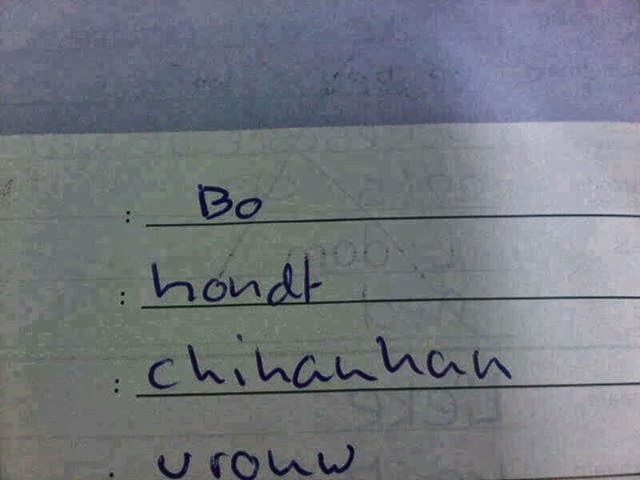 : Bo
: hondt
: chihauhau
: vrouw